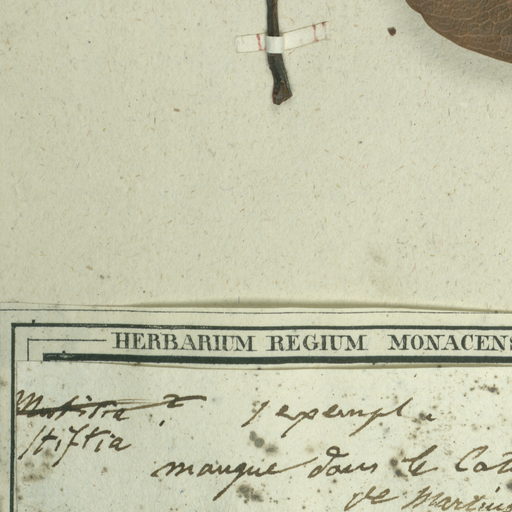 HERBARIUM REGIUM MONACENS
Mutisia ? 1 exempl.
Stiftia
manque dans le Cat
de Martius